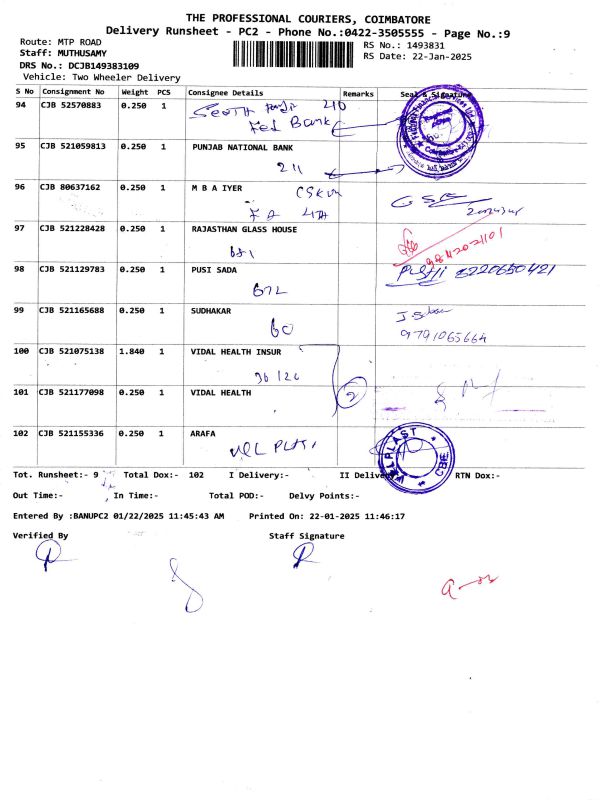 THE PROFESSIONAL COURIERS, COIMBATORE
Delivery Runsheet - PC2 - Phone No.:0422-3505555 - Page No.:9
Route: MTP ROAD
RS No.: 1493831
Staff: MUTHUSAMY
RS Date: 22-Jan-2025
DRS No.: DCJB149383109
Vehicle: Two Wheeler Delivery
S No Consignment No Weight PCS Consignee Details Remarks Seal & Signature
94 CJB 52570883 0.250 1 210
Fed Bank
95 CJB 521059813 0.250 1 PUNJAB NATIONAL BANK
211
96 CJB 80637162 0.250 1 M B A IYER
97 CJB 521228428 0.250 1 RAJASTHAN GLASS HOUSE
9842021101
98 CJB 521129783 0.250 1 PUSI SADA
8220650421
99 CJB 521165688 0.250 1 SUDHAKAR
60
9791065664
100 CJB 521075138 1.840 1 VIDAL HEALTH INSUR
101 CJB 521177098 0.250 1 VIDAL HEALTH
2
102 CJB 521155336 0.250 1 ARAFA
WELPLAST CBE
Tot. Runsheet:- 9 Total Dox:- 102 I Delivery:- II Delivery:- RTN Dox:-
Out Time:- In Time:- Total POD:- Delvy Points:-
Entered By :BANUPC2 01/22/2025 11:45:43 AM Printed On: 22-01-2025 11:46:17
Verified By Staff Signature